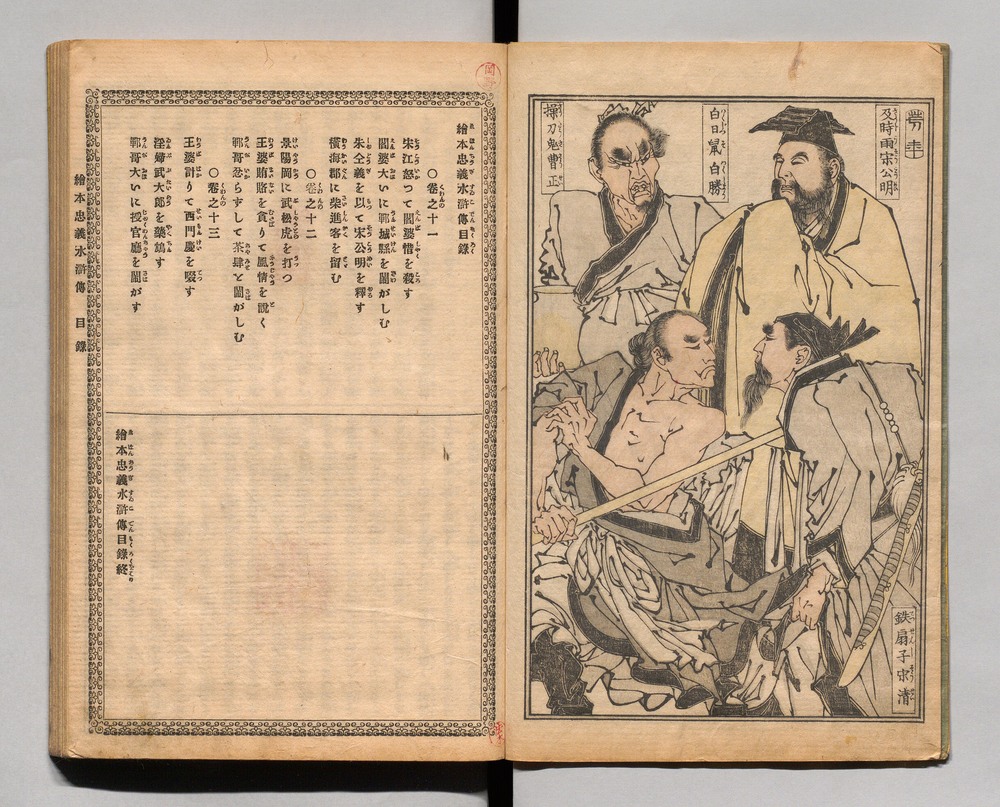 及時雨宋公明
白日鼠白勝
操刀鬼曹正
鉄扇子宋清
繪本忠義水滸傳目錄
○卷之十一
宋江怒つて閻婆惜を殺す
閻婆大いに鄆城縣を鬧がしむ
朱仝義を以て宋公明を釋す
橫海郡に柴進客を留む
○卷之十二
景陽岡に武松虎を打つ
王婆賄賂を貪りて風情を說く
鄆哥忿らずして茶肆を鬧がしむ
○卷之十三
王婆計りて西門慶を啜す
淫婦武大郎を藥鴆す
鄆哥大いに授官廳を鬧がす
繪本忠義水滸傳目錄終
繪本忠義水滸傳 目錄